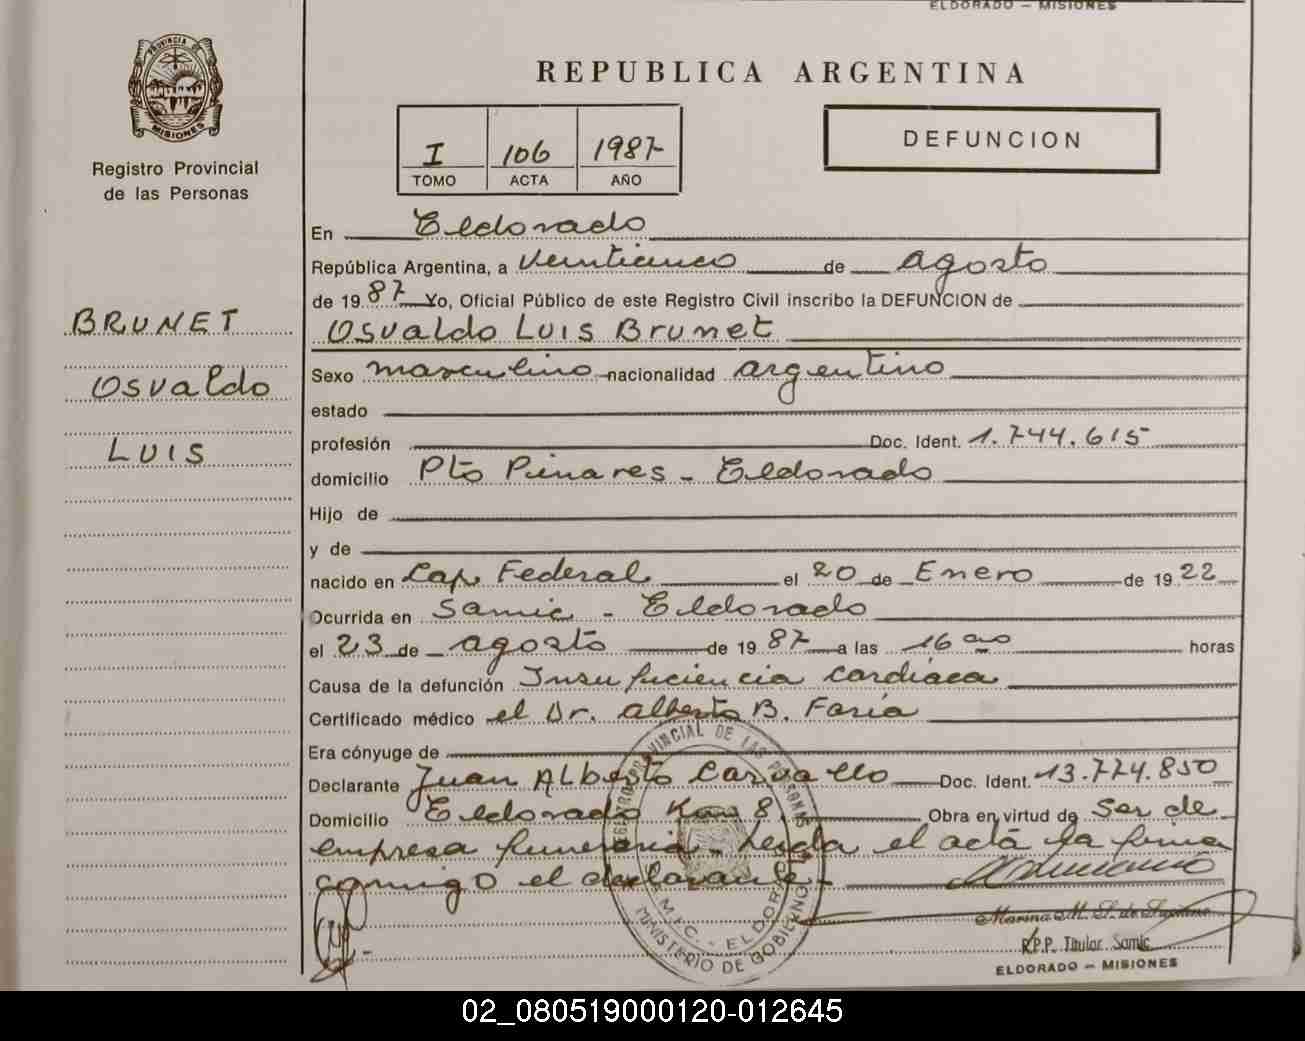 ELDORADO — MISIONES
PROVINCIA DE
MISIONES
Registro Provincial
de las Personas
REPUBLICA ARGENTINA
I 106 1987
TOMO ACTA AÑO
DEFUNCION
BRUNET
Osvaldo
LUIS
En Eldorado
República Argentina, a veinticinco de agosto
de 1987 Yo, Oficial Público de este Registro Civil inscribo la DEFUNCION de
Osvaldo Luis Brunet
Sexo masculino nacionalidad argentino
estado
profesión Doc. Ident. 1.744.615
domicilio Pto Pinares - Eldorado
Hijo de
y de
nacido en Cap. Federal el 20 de Enero de 1922
Ocurrida en Samic - Eldorado
el 23 de agosto de 1987 a las 16 horas
Causa de la defunción Insuficiencia cardíaca
Certificado médico el Dr. Alberto B. Faria
Era cónyuge de
Declarante Juan Alberto Carvallo Doc. Ident. 13.774.850
Domicilio Eldorado Km 8 Obra en virtud de ser de
empresa funeraria - Leida el acta la firma
comigo el declarante -
REGISTRO PROVINCIAL DE LAS PERSONAS
S.A.M.I.C. - ELDORADO
MINISTERIO DE GOBIERNO
Marina M. S. de
R.P.P. Titular Samic
ELDORADO — MISIONES
02_080519000120-012645